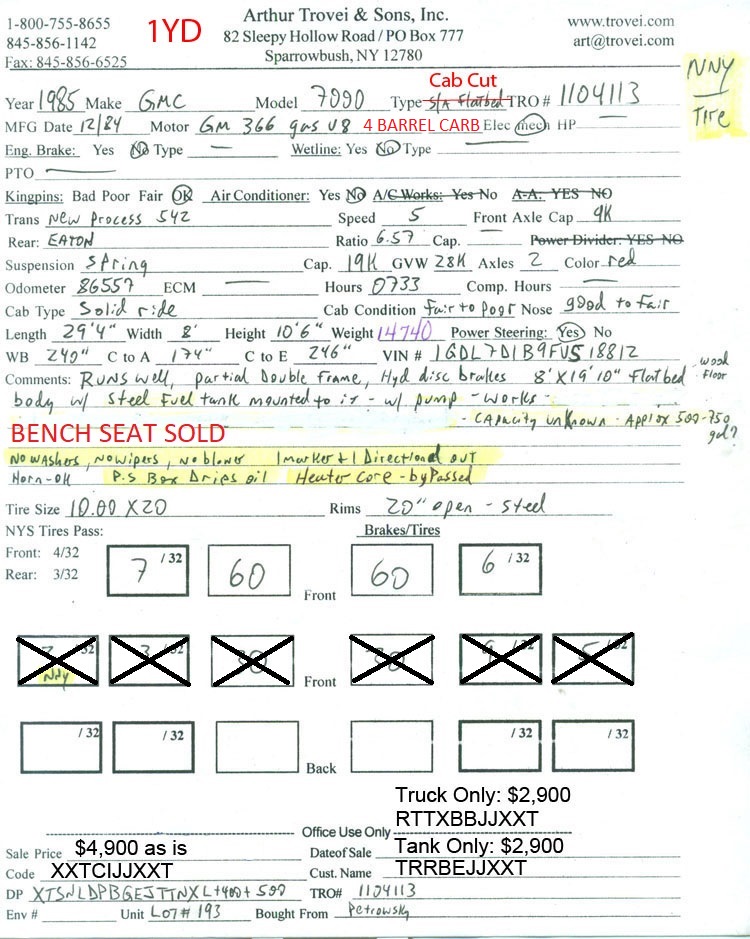 1-800-755-8655
845-856-1142
Fax: 845-856-6525
1YD
Arthur Trovei & Sons, Inc.
82 Sleepy Hollow Road / PO Box 777
Sparrowbush, NY 12780
www.trovei.com
art@trovei.com
NNY
Tire
Cab Cut
Year 1985 Make GMC Model 7000 Type S/A Flatbed TRO # 1104113
MFG Date 12/84 Motor GM 366 gas V8 4 BARREL CARB Elec mech HP —
Eng. Brake: Yes No Type — Wetline: Yes No Type —
PTO —
Kingpins: Bad Poor Fair OK Air Conditioner: Yes No A/C Works: Yes No A-A: YES NO
Trans New Process 542 Speed 5 Front Axle Cap 9K
Rear: EATON Ratio 6.57 Cap. — Power Divider: YES NO
Suspension Spring Cap. 19K GVW 28K Axles 2 Color red
Odometer 86557 ECM — Hours 0733 Comp. Hours —
Cab Type Solid ride Cab Condition Fair to poor Nose good to fair
Length 29'4" Width 8' Height 10'6" Weight 14740 Power Steering: Yes No
WB 240" C to A 174" C to E 246" VIN # 1GDL7D1B9FV518812
Comments: RUNS well, partial Double Frame, Hyd disc brakes 8'X19'10" Flatbed wood floor
body w/ Steel Fuel tank mounted to it - w/ pump - works -
- CAPACITY UNKNOWN - Approx 500-750 gal?
BENCH SEAT SOLD
NO WASHERS, NO WIPERS, NO blower 1 marker + 1 Directional out
Horn-OK P.S Box Drips oil Heater Core - by Passed
Tire Size 10.00 X20 Rims 20" open - steel
NYS Tires Pass: Brakes/Tires
Front: 4/32
Rear: 3/32
7 /32 60 Front 60 6 /32
/32 /32 Front /32 /32
NNY
/32 /32 Back /32 /32
Truck Only: $2,900
RTTXBBJJXXT
Office Use Only
Sale Price $4,900 as is Date of Sale Tank Only: $2,900
Code XXTCIJJXXT Cust. Name TRRBEJJXXT
DP XTSNLDPBGEJTTNXL+400+500 TRO# 1104113
Env # Unit LOT# 193 Bought From Petrowsky